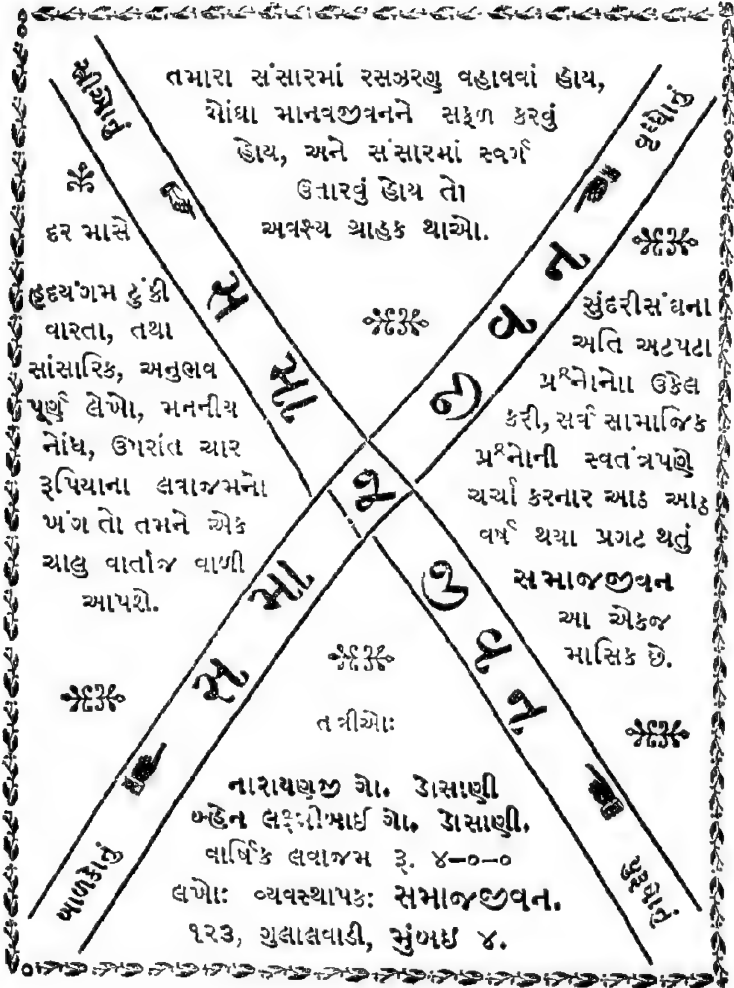 તમારા સંસારમાં રસઝરણુ વહાવવાં હોય,
મોંઘા માનવજીવનને સફળ કરવું
હોય, અને સંસારમાં સ્વર્ગ
ઉતારવું હોય તો
અવશ્ય ગ્રાહક થાઓ.
સ્ત્રીઓનું
સમાજજીવન
પુરૂષોનું
બાળકોનું
સમાજજીવન
વૃધ્ધોનું
દર માસે
હૃદયંગમ ટુંકી
વારતા, તથા
સાંસારિક, અનુભવ
પૂર્ણ લેખો, મનનીય
નોંધ, ઉપરાંત ચાર
રૂપિયાના લવાજમનો
ખંગ તો તમને એક
ચાલુ વાર્તાજ વાળી
આપશે.
સુંદરીસંઘના
અતિ અટપટા
પ્રશ્નોનો ઉકેલ
કરી, સર્વ સામાજિક
પ્રશ્નોની સ્વતંત્રપણે
ચર્ચા કરનાર આઠ આઠ
વર્ષ થયા પ્રગટ થતું
સમાજજીવન
આ એકજ
માસિક છે.
તંત્રીઓઃ
નારાયણજી ગો. ડોસાણી
બ્હેન લક્ષ્મીબાઈ ગો. ડોસાણી.
વાર્ષિક લવાજમ રૂ. ૪–૦–૦
લખોઃ વ્યવસ્થાપકઃ સમાજજીવન.
૧૨૩, ગુલાલવાડી, મુંબઇ ૪.